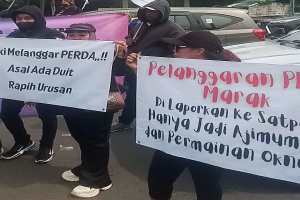 ki Melanggar PERDA,,!!
Asal Ada Duit
Rapih Urusan
Pelanggaran P
Marak
Di Laporkan Ke Satp
Hanya Jadi Ajimum
dan Permainan Okn